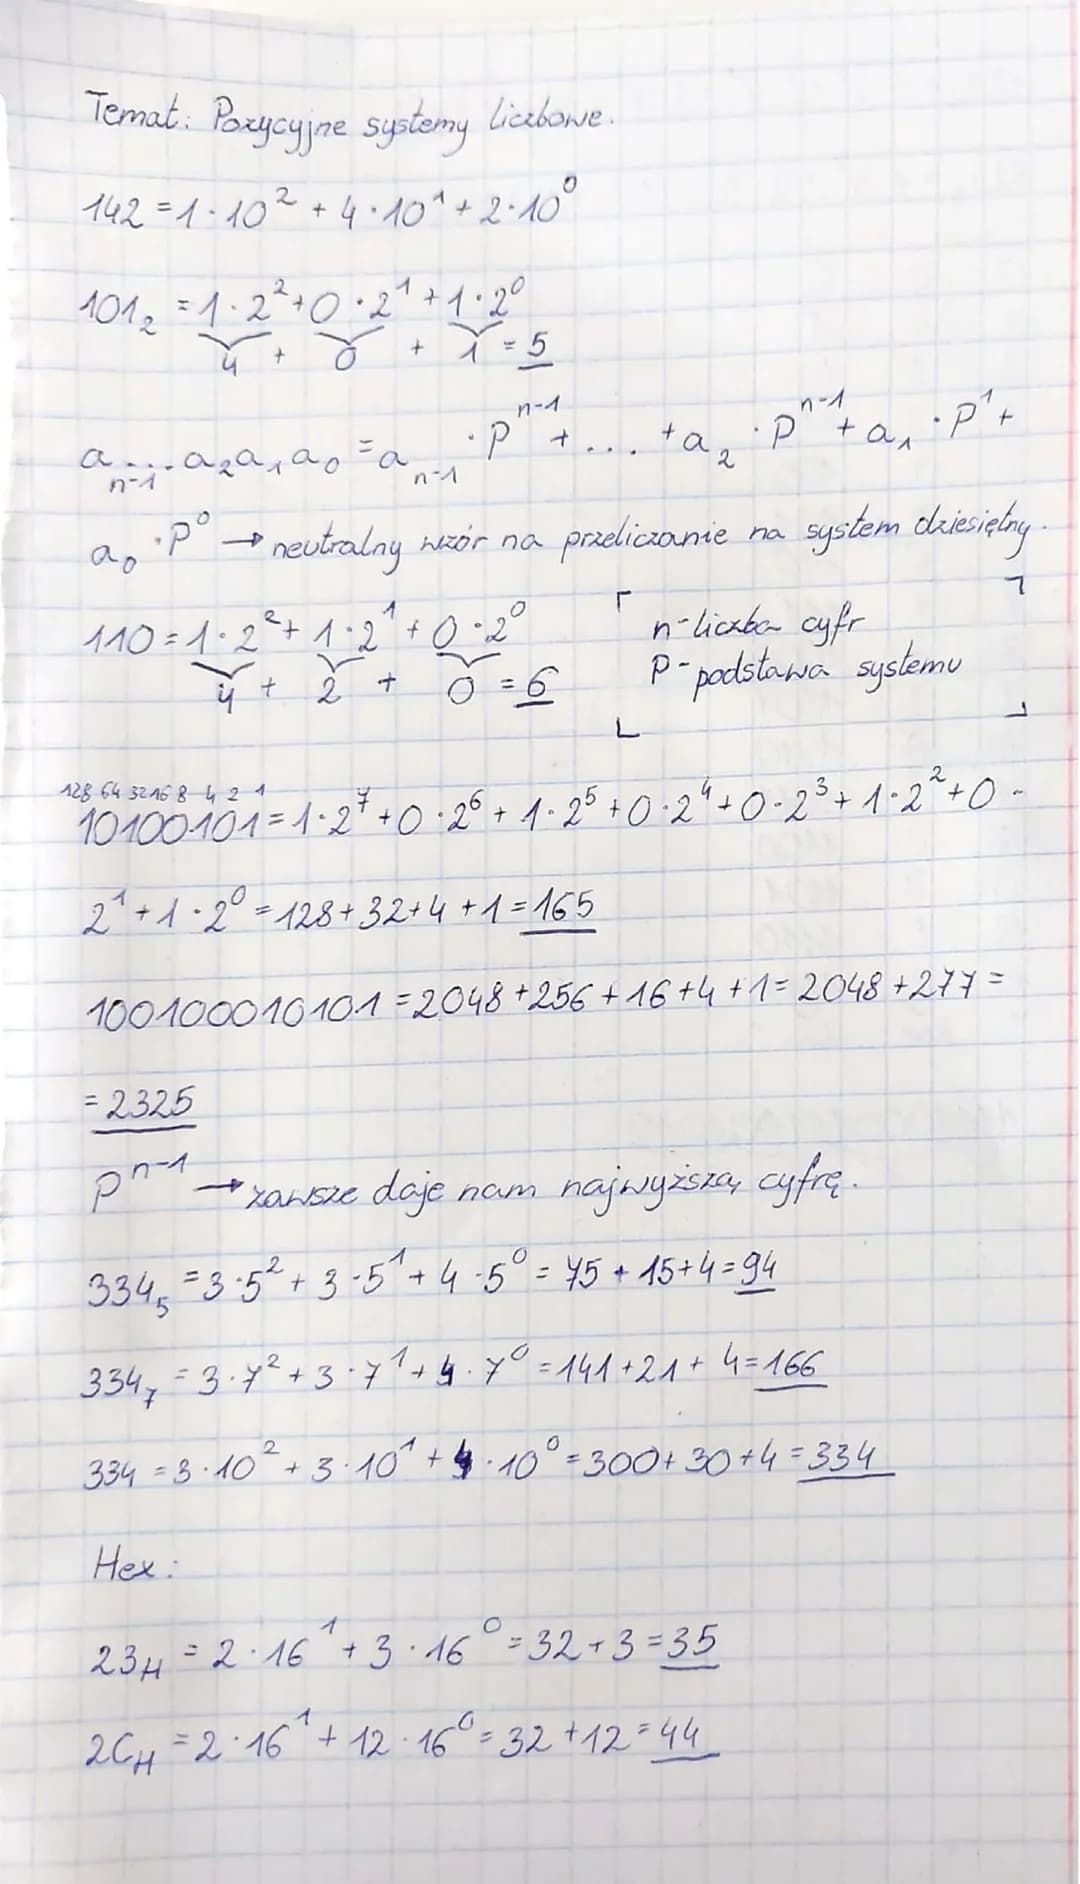 Temat: Pozycyjne systemy liczbowe.
142 = 1·10² + 4·10¹ + 2·10⁰
101₂ = 1·2² + 0·2¹ + 1·2⁰
4 + 0 + 1 = 5
aₙ₋₁...a₂a₁a₀ = aₙ₋₁·Pⁿ⁻¹ + ... + a₂·Pⁿ⁻¹ + a₁·P¹ +
a₀·P⁰ → neutralny wzór na przeliczanie na system dziesiętny.
110 = 1·2² + 1·2¹ + 0·2⁰
4 + 2 + 0 = 6
n - liczba cyfr
P - podstawa systemu
128 64 32 16 8 4 2 1
10100101 = 1·2⁷ + 0·2⁶ + 1·2⁵ + 0·2⁴ + 0·2³ + 1·2² + 0·
2¹ + 1·2⁰ = 128 + 32 + 4 + 1 = 165
100100010101 = 2048 + 256 + 16 + 4 + 1 = 2048 + 277 =
= 2325
Pⁿ⁻¹ → zawsze daje nam najwyższą cyfrę.
334₅ = 3·5² + 3·5¹ + 4·5⁰ = 75 + 15 + 4 = 94
334₇ = 3·7² + 3·7¹ + 4·7⁰ = 141 + 21 + 4 = 166
334 = 3·10² + 3·10¹ + 4·10⁰ = 300 + 30 + 4 = 334
Hex:
23H = 2·16¹ + 3·16⁰ = 32 + 3 = 35
2CH = 2·16¹ + 12·16⁰ = 32 + 12 = 44